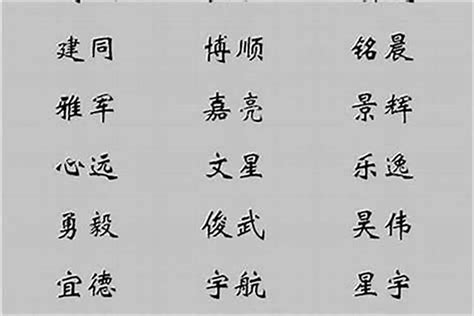 建同 博顺 铭晨
雅军 嘉亮 景辉
心远 文星 乐逸
勇毅 俊武 昊伟
宜德 宇航 星宇